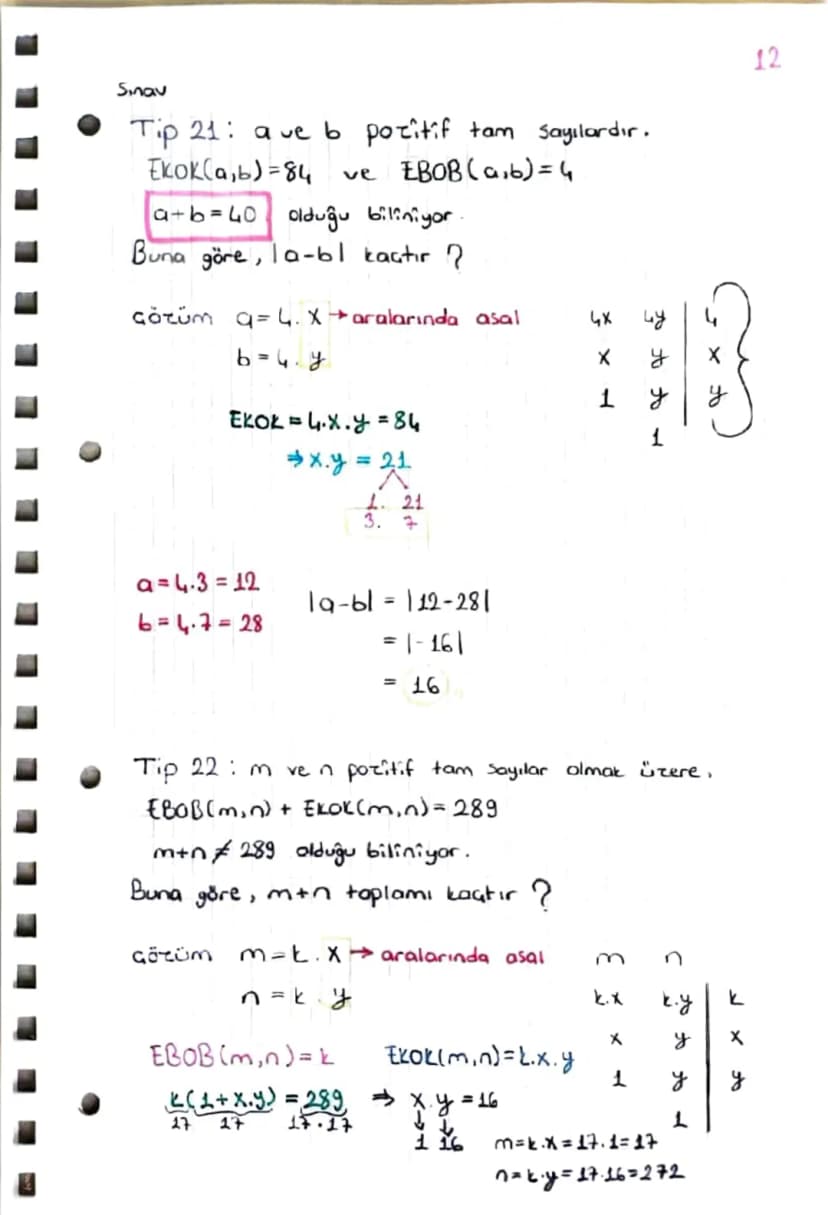 12
Sınav
Tip 21 : a ve b pozitif tam sayılardır.
EKOK(a,b)=84 ve EBOB(a,b)=4
a+b=40 olduğu biliniyor.
Buna göre, |a-b| kaçtır ?
çözüm a=4.x → aralarında asal
b=4.y
4x 4y | 4
x y | x
1 y | y
1
EKOK=4.x.y=84
⇒ x.y = 21
1. 21
3. 7
a=4.3=12
b=4.7=28
|a-b| = |12-28|
= |-16|
= 16
Tip 22 : m ve n pozitif tam sayılar olmak üzere,
EBOB(m,n) + EKOK(m,n)=289
m+n≠289 olduğu biliniyor.
Buna göre, m+n toplamı kaçtır ?
çözüm m=k.x → aralarında asal
n=k.y
m n
k.x k.y | k
x y | x
1 y | y
1
EBOB(m,n)=k EKOK(m,n)=k.x.y
k(1+x.y)=289 ⇒ x.y=16
17 17 17.17
1 16
m=k.x=17.1=17
n=k.y=17.16=272